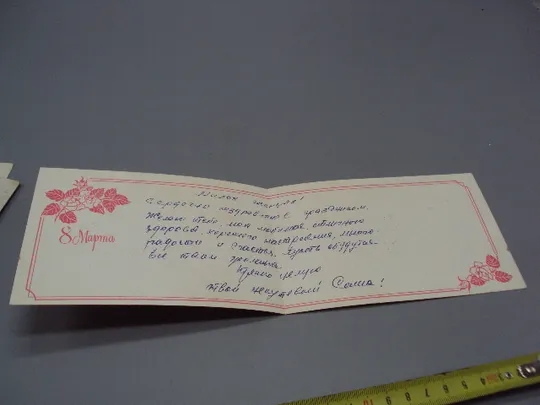 Милая мамуля!
Сердечно поздравляю с праздником.
Желаю тебе моя любимая отличного
здоровья хорошего настроения, много
радости и счастья. Пусть сбудутся
все твои желания.
Крепко целую
твой Саша!
8 Марта